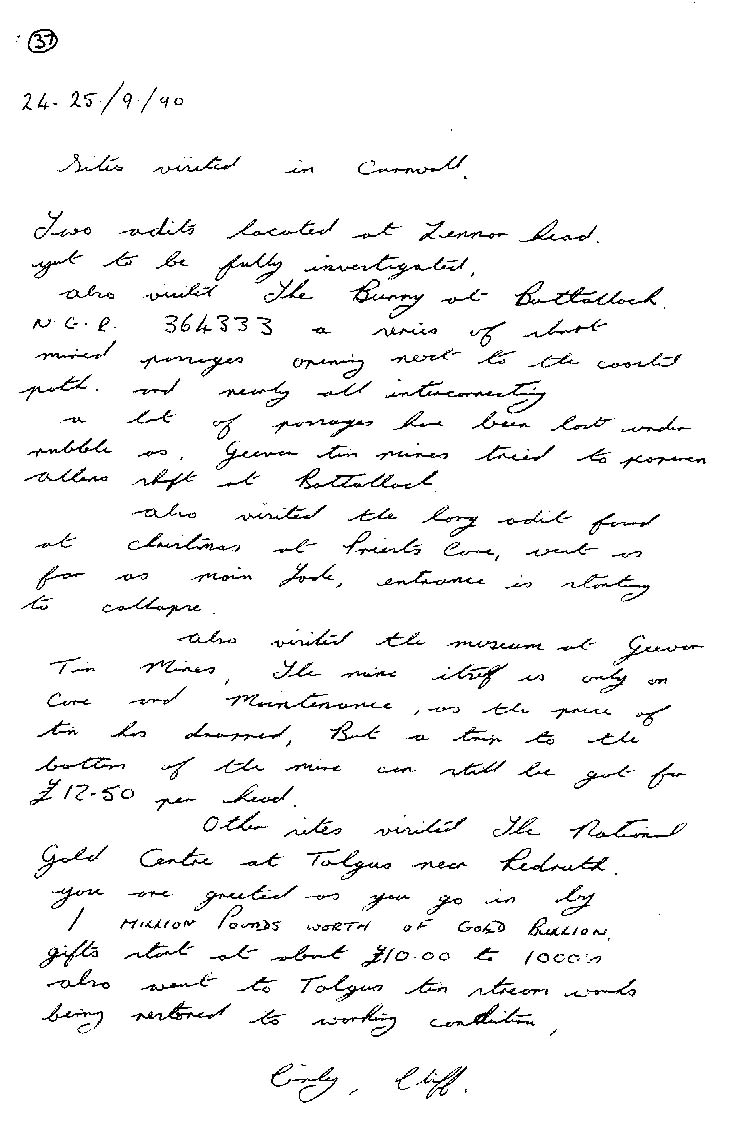 37
24-25/9/90
Sites visited in Cornwall.
Two adits located at Zennor head.
yet to be fully investigated,
also visited The Bunny at Bottallack.
N.G.R. 364333 a series of short
mined passages opening next to the coastal
path. and nearly all interconnecting
a lot of passages have been lost under
rubble as, Geevor tin mines tried to
Allens shaft at Bottallack
also visited the long adit found
at christmas at Priests Cove, went as
far as main Lode, entrance is starting
to collapse.
also visited the museum at Geevor
Tin Mines, The mine itself is only on
Care and Maintenance, as the price of
tin has dropped, But a trip to the
bottom of the mine can still be got for
£12-50 per head.
Other sites visited The National
Gold Centre at Tolgus near Redruth.
you are greeted as you go in by
1 MILLION POUNDS WORTH OF GOLD BULLION.
gifts start at about £10.00 to 1000's
also went to Tolgus tin stream works
being restored to working condition,
Cliff.